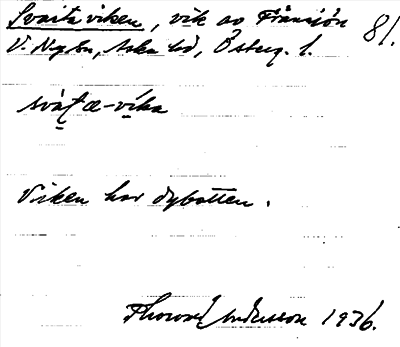 Svarta viken, vik av Trånsjön 81.
V. Ny sn, Aska hd, Österg. l.
svaʈæ-vika
Viken har dybotten.
Thorvald Andersson 1936.